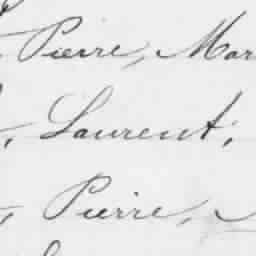 Pierre, Mar
, Laurent,
, Pierre,